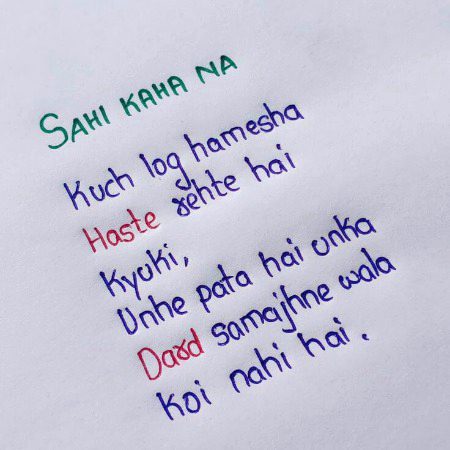 SAHI KAHA NA
Kuch log hamesha
Haste rehte hai
Kyuki,
Unhe pata hai unka
Dard samajhne wala
koi nahi hai.